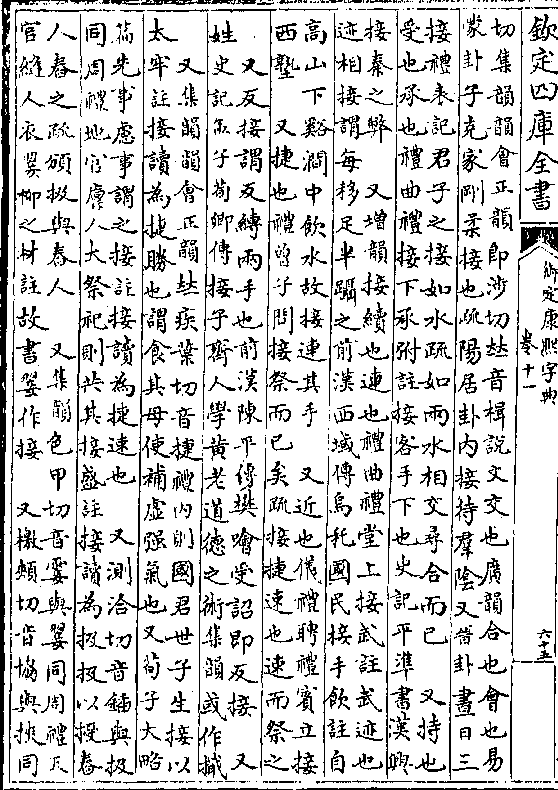 欽定四庫全書
御定康熙字典
卷十一
六十五
切集韻韻會正韻即涉切𠀤音楫説文交也廣韻合也會也易
蒙卦子克家剛柔接也疏陽居卦内接待羣陰又晉卦晝日三
接禮表記君子之接如水疏如兩水相交尋合而已　又持也
受也承也禮曲禮接下承弣註接客手下也史記平準書漢興
接秦之弊　又增韻接續也連也禮曲禮堂上接武註武迹也
迹相接謂每移足半躡之前漢西域傳烏秅國民接手飲註自
高山下谿澗中飲水故接連其手　又近也儀禮聘禮賓立接
西塾　又捷也禮曾子問接祭而已矣疏接捷速也速而祭之
又反接謂反縛兩手也前漢陳平傳樊噲受詔即反接　又
姓史記孟子荀卿傳接子齊人學黄老道德之術集韻或作擑
又集韻韻會正韻𠀤疾葉切音捷禮内則國君世子生接以
太牢註接讀為捷勝也謂食其母使補虚强氣也又荀子大略
篇先事慮事謂之接註接讀為捷速也　又測洽切音鍤與扱
同周禮地官廩人大祭祀則共其接盛註接讀為扱扱以授舂
人舂之疏頒扱與舂人　又集韻色甲切音霎與翣同周禮天
官縫人衣翣柳之材註故書翣作接　又檄頰切音協與挾同